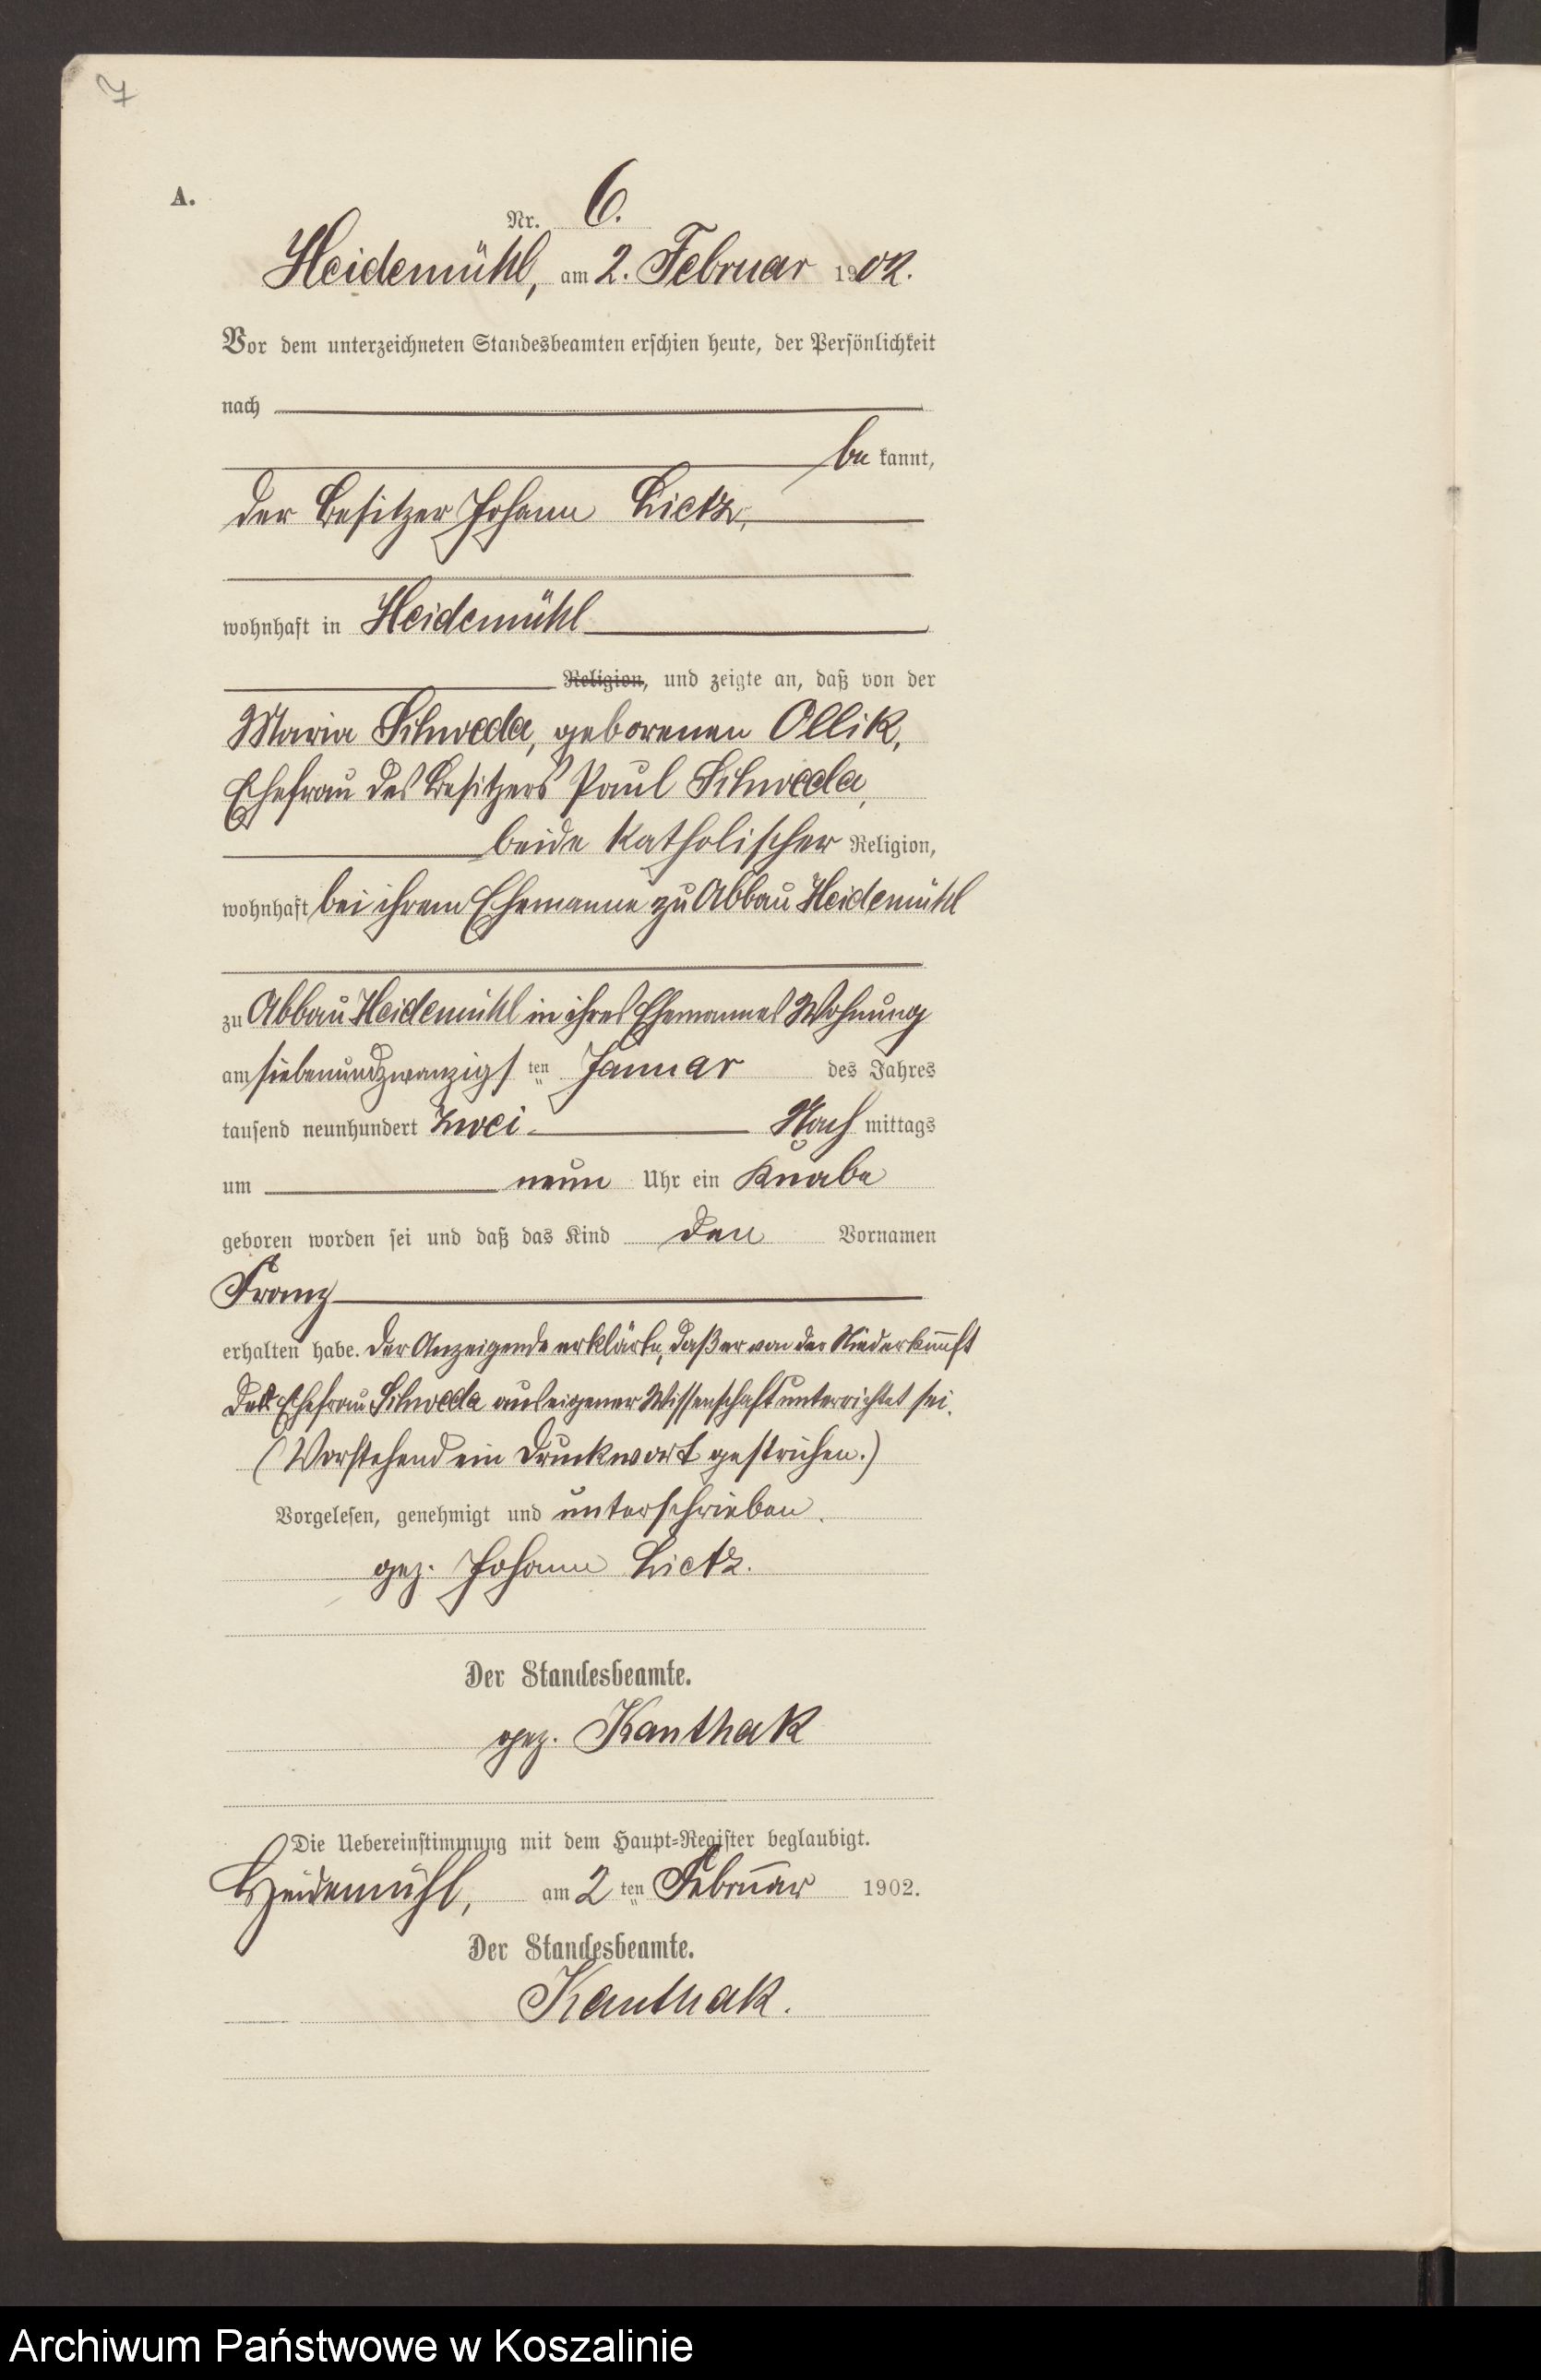 7
A.
Nr. 6.
Heidemühl, am 2. Februar 1902.
Vor dem unterzeichneten Standesbeamten erschien heute, der Persönlichkeit
nach
be kannt,
der Besitzer Johann Lietz,
wohnhaft in Heidemühl
Religion, und zeigte an, daß von der
Maria Schweda, geborenen Ollik,
Ehefrau des Besitzers Paul Schweda,
beide katholischer Religion,
wohnhaft bei ihrem Ehemanne zu Abbau Heidemühl
zu Abbau Heidemühl in ihres Ehemannes Wohnung
am siebenundzwanzigsten Januar des Jahres
tausend neunhundert zwei Nach mittags
um neun Uhr ein Knabe
geboren worden sei und daß das Kind den Vornamen
Franz
erhalten habe. Der Anzeigende erklärte, daß er von der Niederkunft
der Ehefrau Schweda aus eigener Wissenschaft unterrichtet sei.
(Vorstehend ein Druckwort gestrichen.)
Vorgelesen, genehmigt und unterschrieben.
gez. Johann Lietz.
Der Standesbeamte.
gez. Kanthak
Die Uebereinstimmung mit dem Haupt-Register beglaubigt.
Heidemühl, am 2ten Februar 1902.
Der Standesbeamte.
Kanthak.
Archiwum Państwowe w Koszalinie